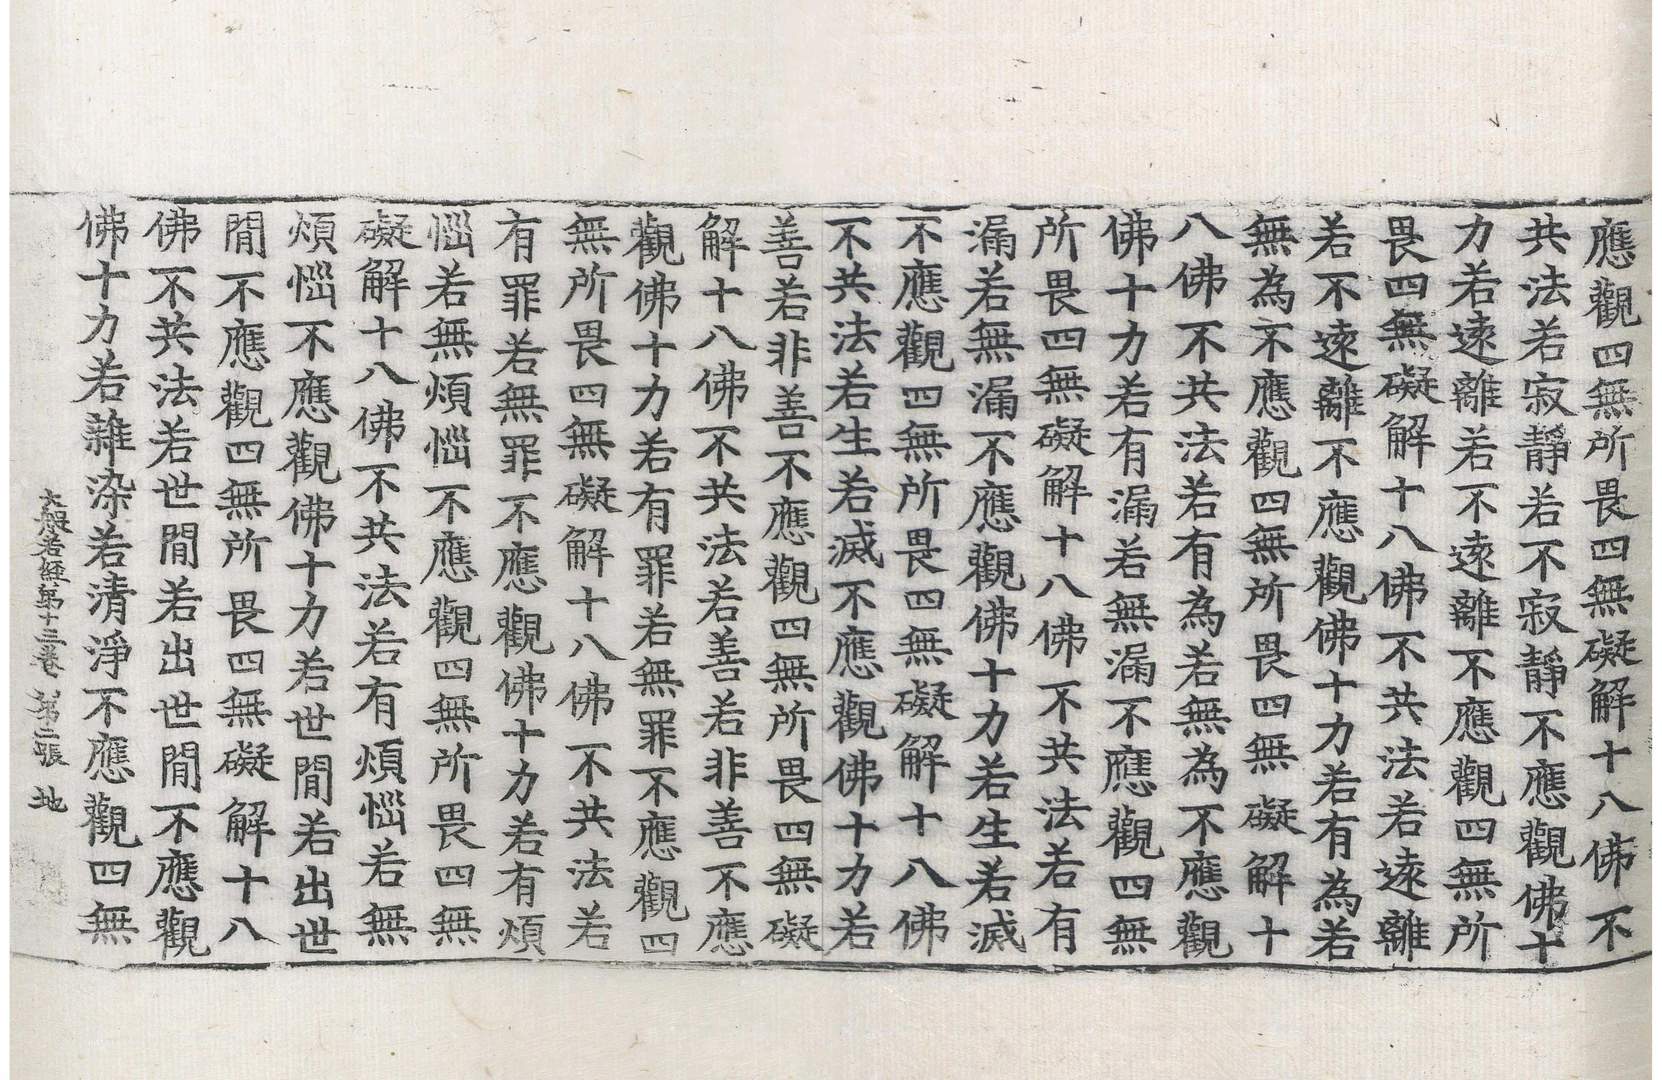 應觀四無所畏四無礙解十八佛不
共法若寂靜若不寂靜不應觀佛十
力若遠離若不遠離不應觀四無所
畏四無礙解十八佛不共法若遠離
若不遠離不應觀佛十力若有為若
無為不應觀四無所畏四無礙解十
八佛不共法若有為若無為不應觀
佛十力若有漏若無漏不應觀四無
所畏四無礙解十八佛不共法若有
漏若無漏不應觀佛十力若生若滅
不應觀四無所畏四無礙解十八佛
不共法若生若滅不應觀佛十力若
善若非善不應觀四無所畏四無礙
解十八佛不共法若善若非善不應
觀佛十力若有罪若無罪不應觀四
無所畏四無礙解十八佛不共法若
有罪若無罪不應觀佛十力若有煩
惱若無煩惱不應觀四無所畏四無
礙解十八佛不共法若有煩惱若無
煩惱不應觀佛十力若世閒若出世
閒不應觀四無所畏四無礙解十八
佛不共法若世閒若出世閒不應觀
佛十力若雜染若清淨不應觀四無
大般若經第十三卷 第二張 地